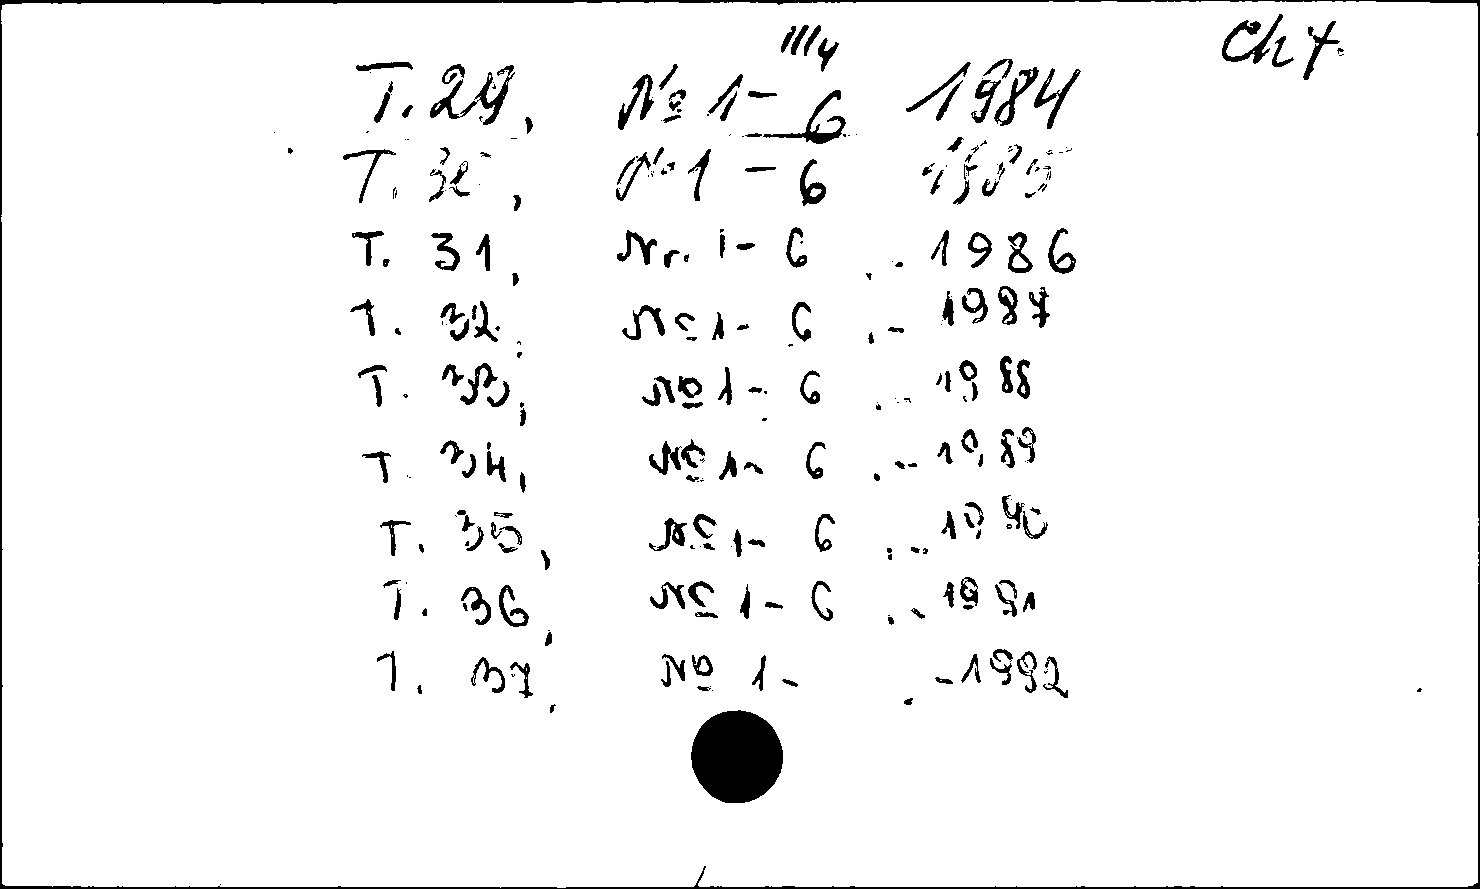 Ch 7.
T. 29, № 1- 6 1984
T. 30, № 1 - 6 1985
T. 31, Nr. 1- 6 .- 1986
T. 32, № 1- 6 .- 1987
T. 33, № 1- 6 .- 1988
T. 34, № 1- 6 .- 1989
T. 35, № 1- 6 .- 1990
T. 36, № 1- 6 .- 1991
T. 37, № 1- .- 1992